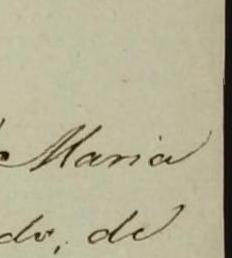 Maria
do, de